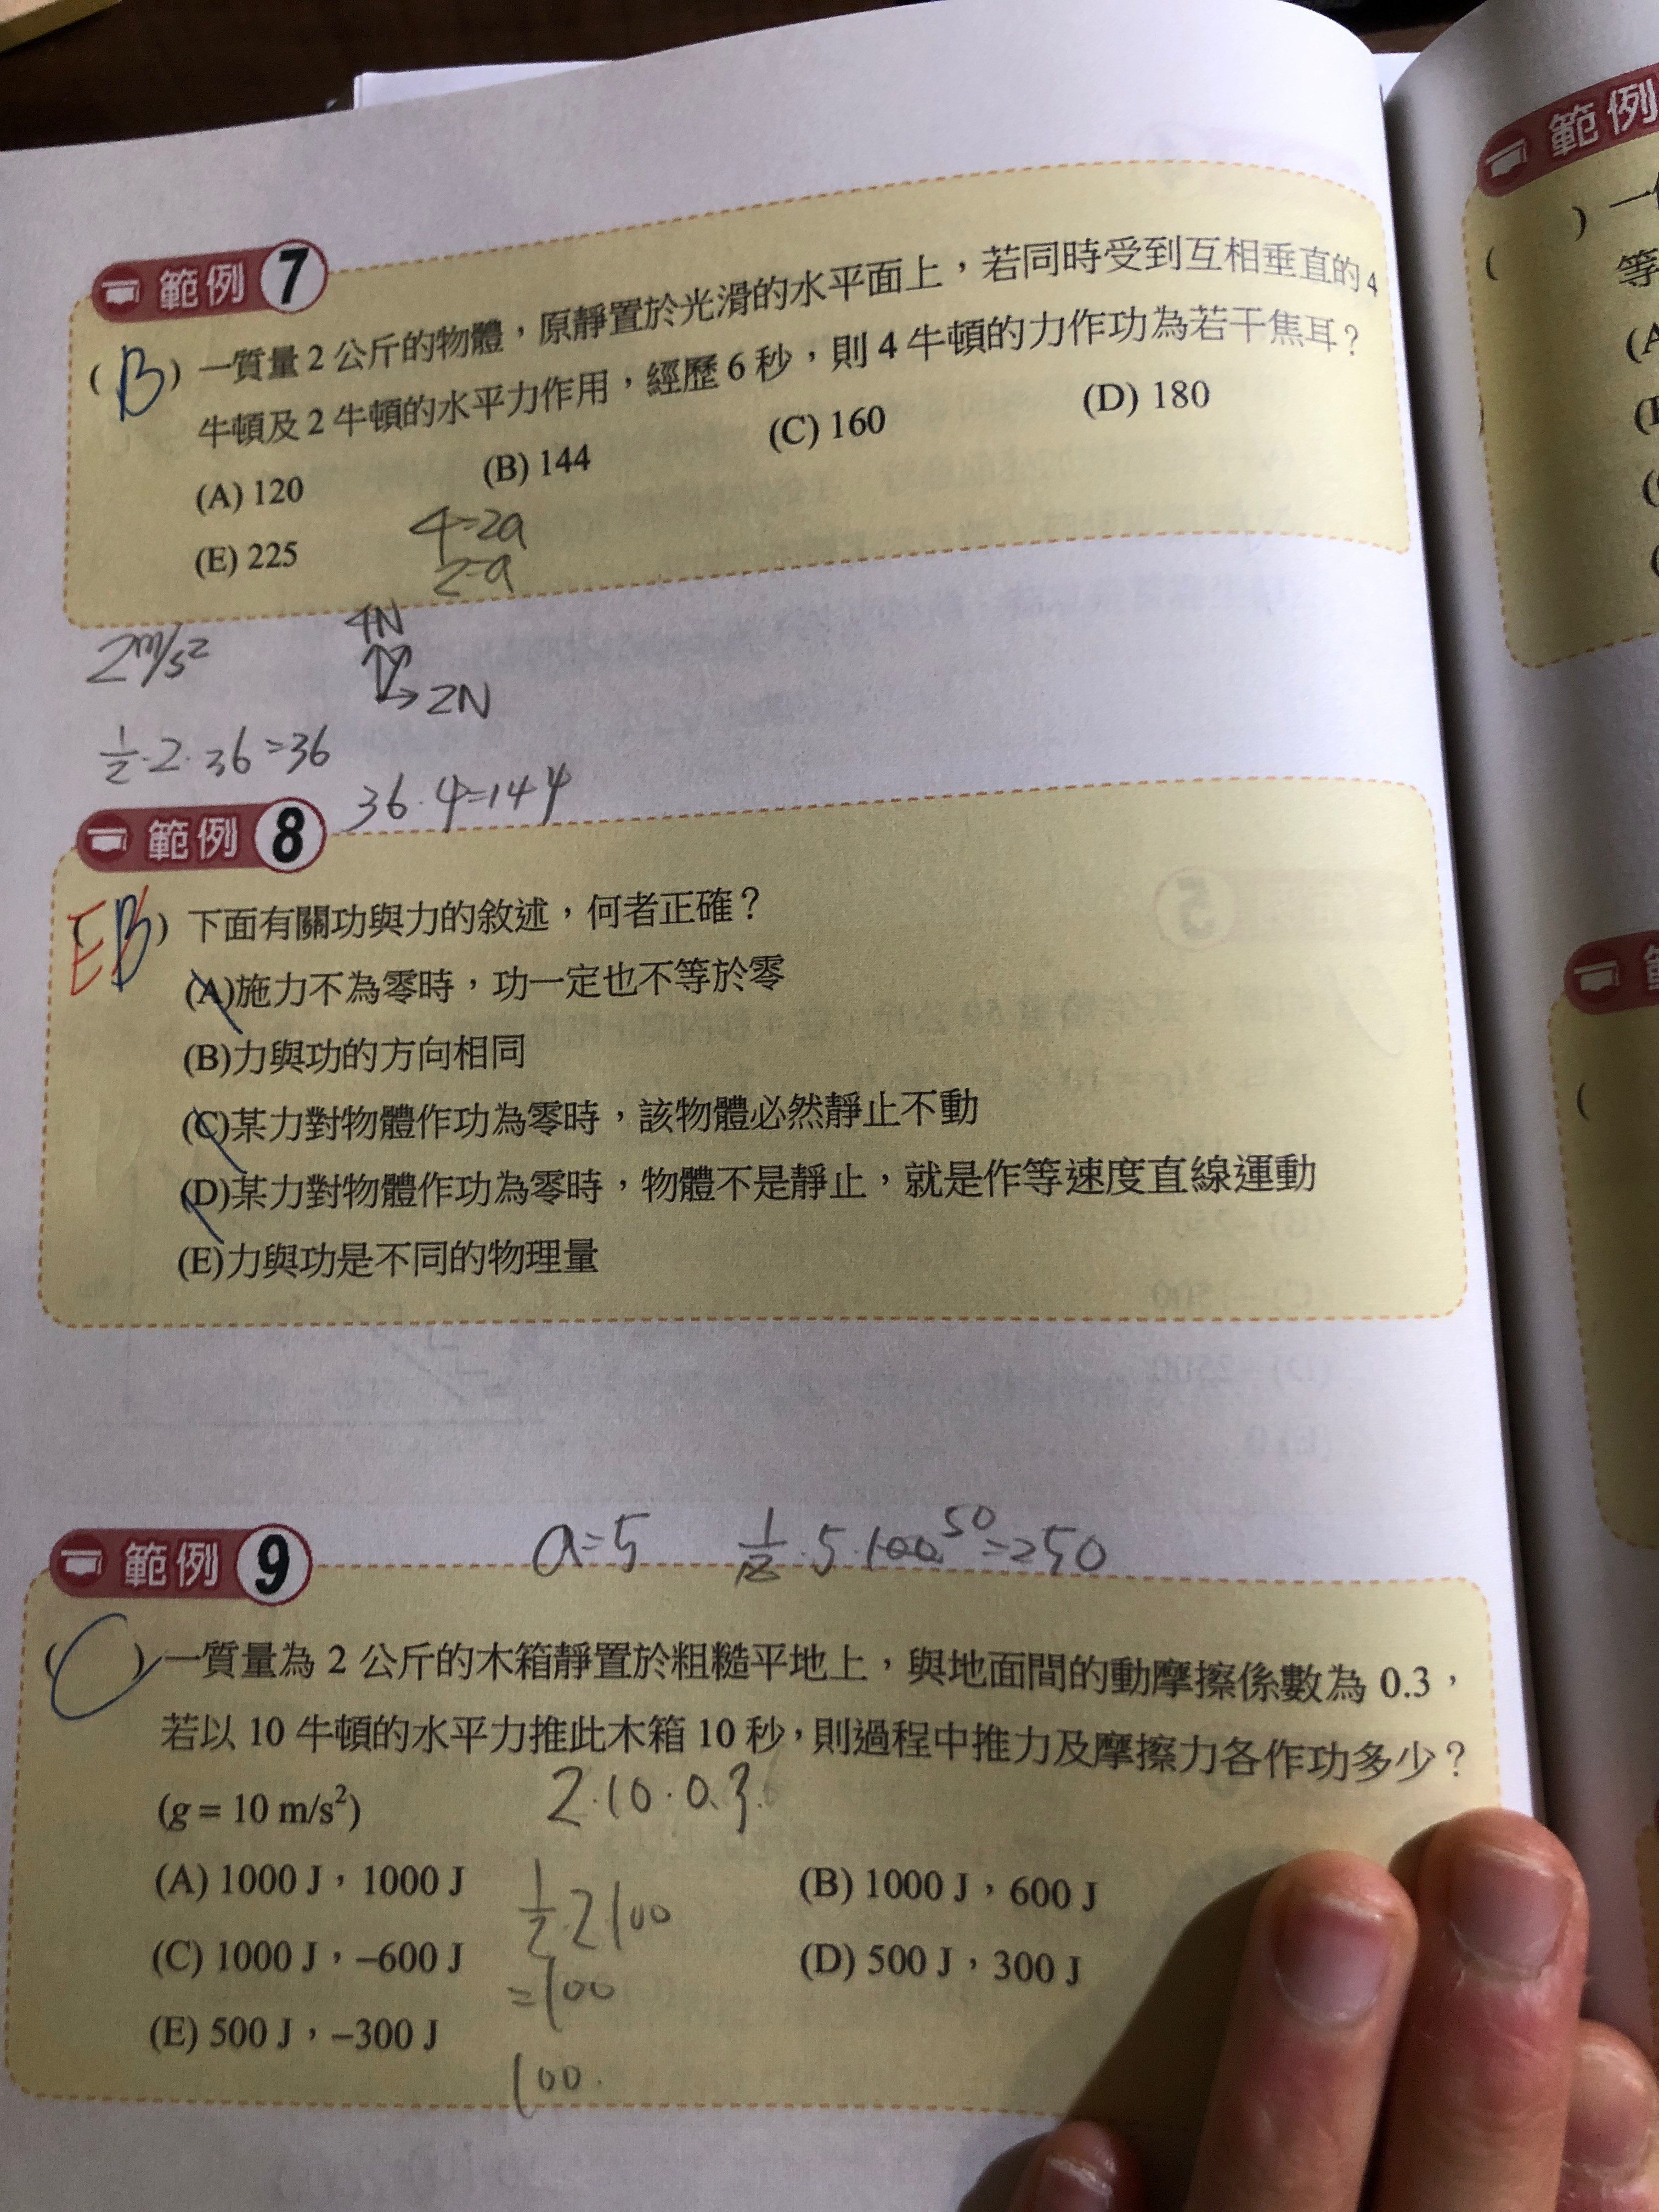 範例 7
(B) 一質量 2 公斤的物體，原靜置於光滑的水平面上，若同時受到互相垂直的 4
牛頓及 2 牛頓的水平力作用，經歷 6 秒，則 4 牛頓的力作功為若干焦耳？
(A) 120 (B) 144 (C) 160 (D) 180
(E) 225
4=2a
2=a
2m/s²
4N
2N
1/2·2·36=36
36·4=144
範例 8
(EB) 下面有關功與力的敘述，何者正確？
(A)施力不為零時，功一定也不等於零
(B)力與功的方向相同
(C)某力對物體作功為零時，該物體必然靜止不動
(D)某力對物體作功為零時，物體不是靜止，就是作等速度直線運動
(E)力與功是不同的物理量
a=5
1/2·5·100 50=250
範例 9
(C) 一質量為 2 公斤的木箱靜置於粗糙平地上，與地面間的動摩擦係數為 0.3，
若以 10 牛頓的水平力推此木箱 10 秒，則過程中推力及摩擦力各作功多少？
(g = 10 m/s²)
2·10·0.3
(A) 1000 J，1000 J (B) 1000 J，600 J
(C) 1000 J，–600 J (D) 500 J，300 J
(E) 500 J，–300 J
1/2·2100
=100
100.
範例
一
等
(A